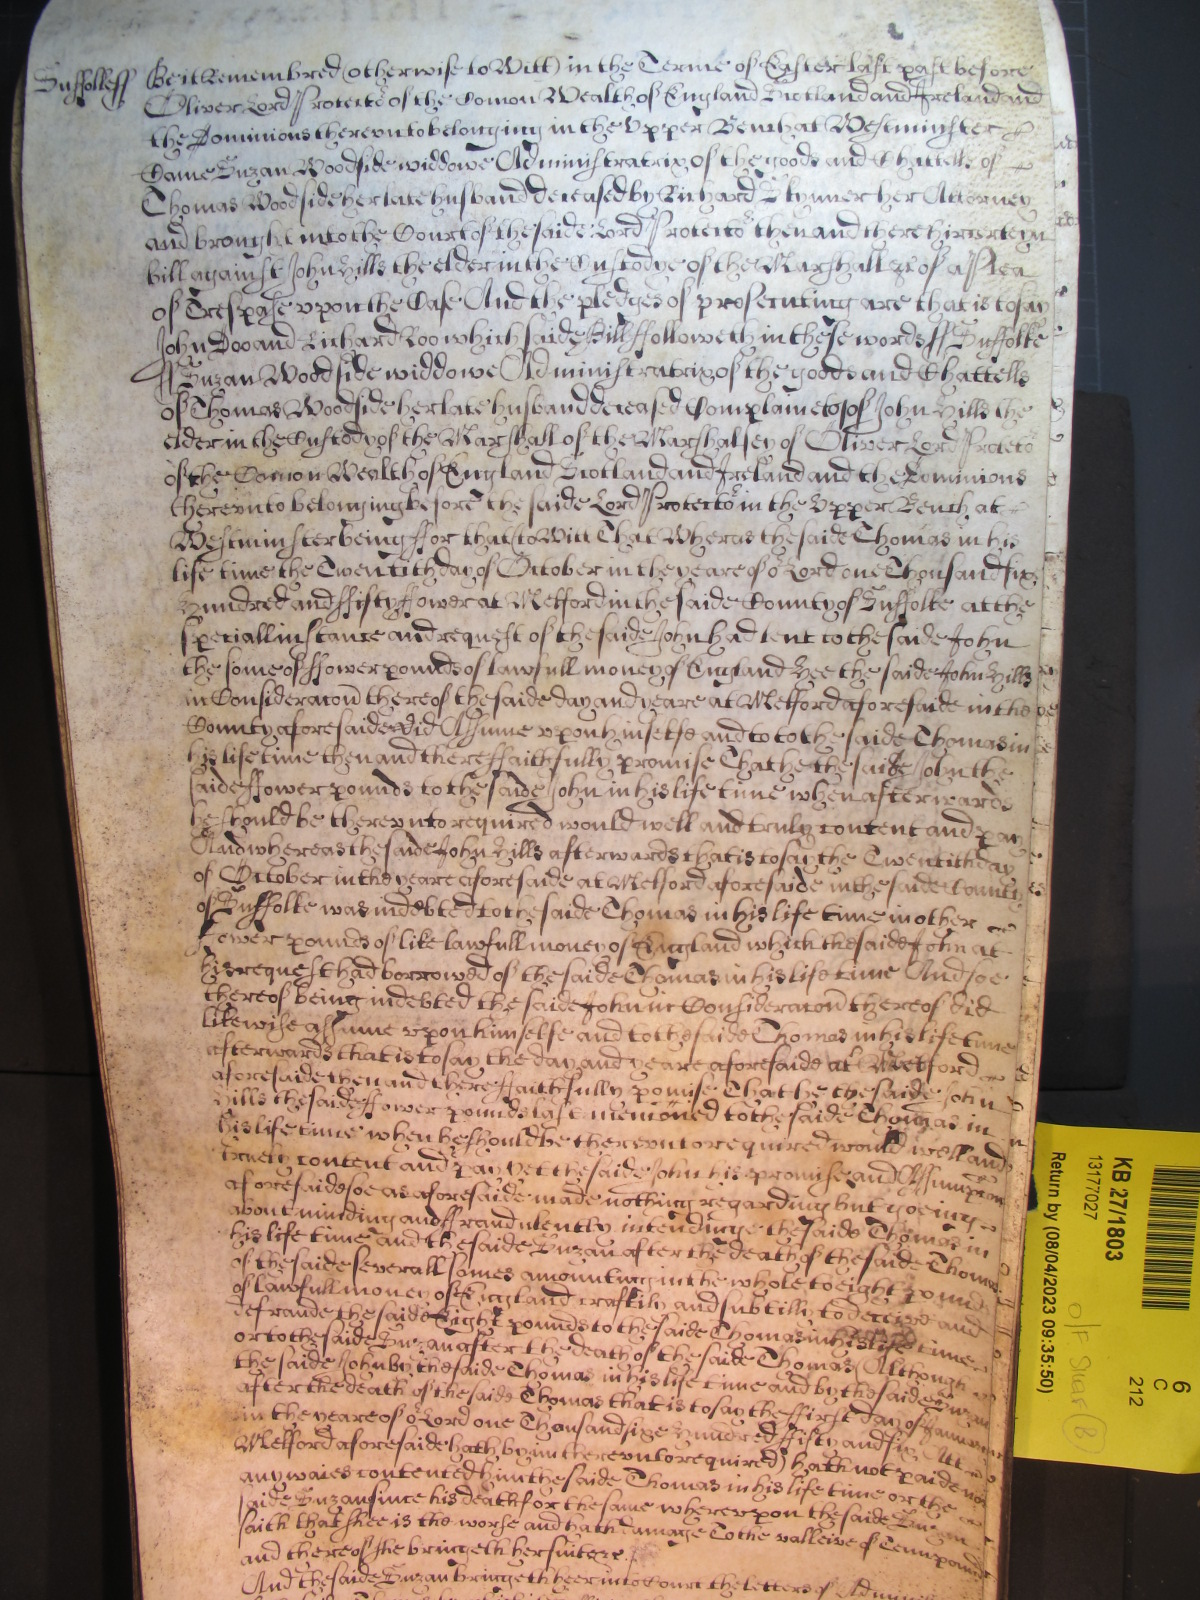 Suffolk ss Be it Remembred (otherwise to Witt) in the Terme of Easter last past before
Oliver Lord Protector of the Comon Wealth of England Scotland and Ireland and
the Dominions thereunto belonging in the Upper Bench at Westminster
Came Suzan Woodside widdowe Administratrix of the goods and Chattells of
Thomas Woodside her late husband deceased by Richard Skynner her Attorney
and brought into the Court of the saide Lord Protector then and there hir certeyn
bill against John Hills the elder in the Custodye of the Marshall &c of a Plea
of Trespasse upon the Case And the pledges of prosecuting are that is to say
John Doo and Richard Roo which saide Bill followeth in these words ss Suffolke
ss Suzan Woodside widdowe Administratrix of the goods and Chattells
of Thomas Woodside her late husband deceased Complainetes of John Hills the
elder in the Custody of the Marshall of the Marshalsey of Oliver Lord Protector
of the Comon Wealth of England Scotland and Ireland and the Dominions
thereunto belonging before the saide Lord Protector in the Upper Bench at
Westminster being ffor that (to Witt) That Wheras the saide Thomas in his
life time the Twentith day of October in the yeare of or Lord one Thousand six
Hundred and ffifty ffower at Melford in the saide County of Suffolke at the
speciall instance and request of the saide John had lent to the saide John
the some of ffower pounds of lawfull money of England Hee the saide John Hills
in Consideracon thereof the saide day and yeare at Melford aforesaide in the
County aforesaide did Assume upon himselfe and to to the saide Thomas in
his life time then and there ffaithfully promise That he the saide John the
saide ffower pounds to the saide John in his life time when afterwards
he should be thereunto required would well and truly content and pay
And whereas the saide John Hills afterwards that is to say the Twentith day
of October in the yeare aforesaide at Melford aforesaide in the saide County
of Suffolke was indebted to the saide Thomas in his life time in other
ffower pounds of like lawfull money of England which the saide John at
his request had borrowed of the saide Thomas in his life time And soe
thereof being indebted the saide John in Consideracon thereof did
likewise assume upon himselfe and to the saide Thomas in his life time
afterwards that is to say the day and yeare aforesaide at Melford
aforesaide then and there ffaithfully pomise That he the saide John
Hills the saide ffower pounds last mencioned to the saide Thomas in
his life time when he should be thereunto required would well and
truely content and pay Yet the saide John his promise and Assumpcon
aforesaide soe as aforesaide made nothing regarding but goeing
about minding and ffraudulently intendinge the saide Thomas in
his life time and the saide Suzan after the death of the saide Thomas
of the saide severall somes amounting in the whole to eight pounds
of lawfull money of England craftily and subtilly to deceive and
defraude the saide Eight pounds to the saide Thomas in his life time
or to the saide Suzan after the death of the saide Thomas (Although
the saide John by the saide Thomas in his life time and by the saide Suzan
after the death of the saide Thomas that is to say the ffirst day of January
in the yeare of or Lord one Thousand sixe Hundred ffifty and six Att
Melford aforesaide hath byin thereunto required) hath not paide nor
any waies contented him the saide Thomas in his life time or the
saide Suzan since his death for the same whereupon the saide Suzan
saith that shee is the worse and hath damage To the valleiwe of Tenn pounds
and thereof she bringeth her suite &c.
And the saide Suzan bringeth heer into Court the letters of
KB 27/1803
13177027
Return by (08/04/2023 09:35:50)
6
C
212